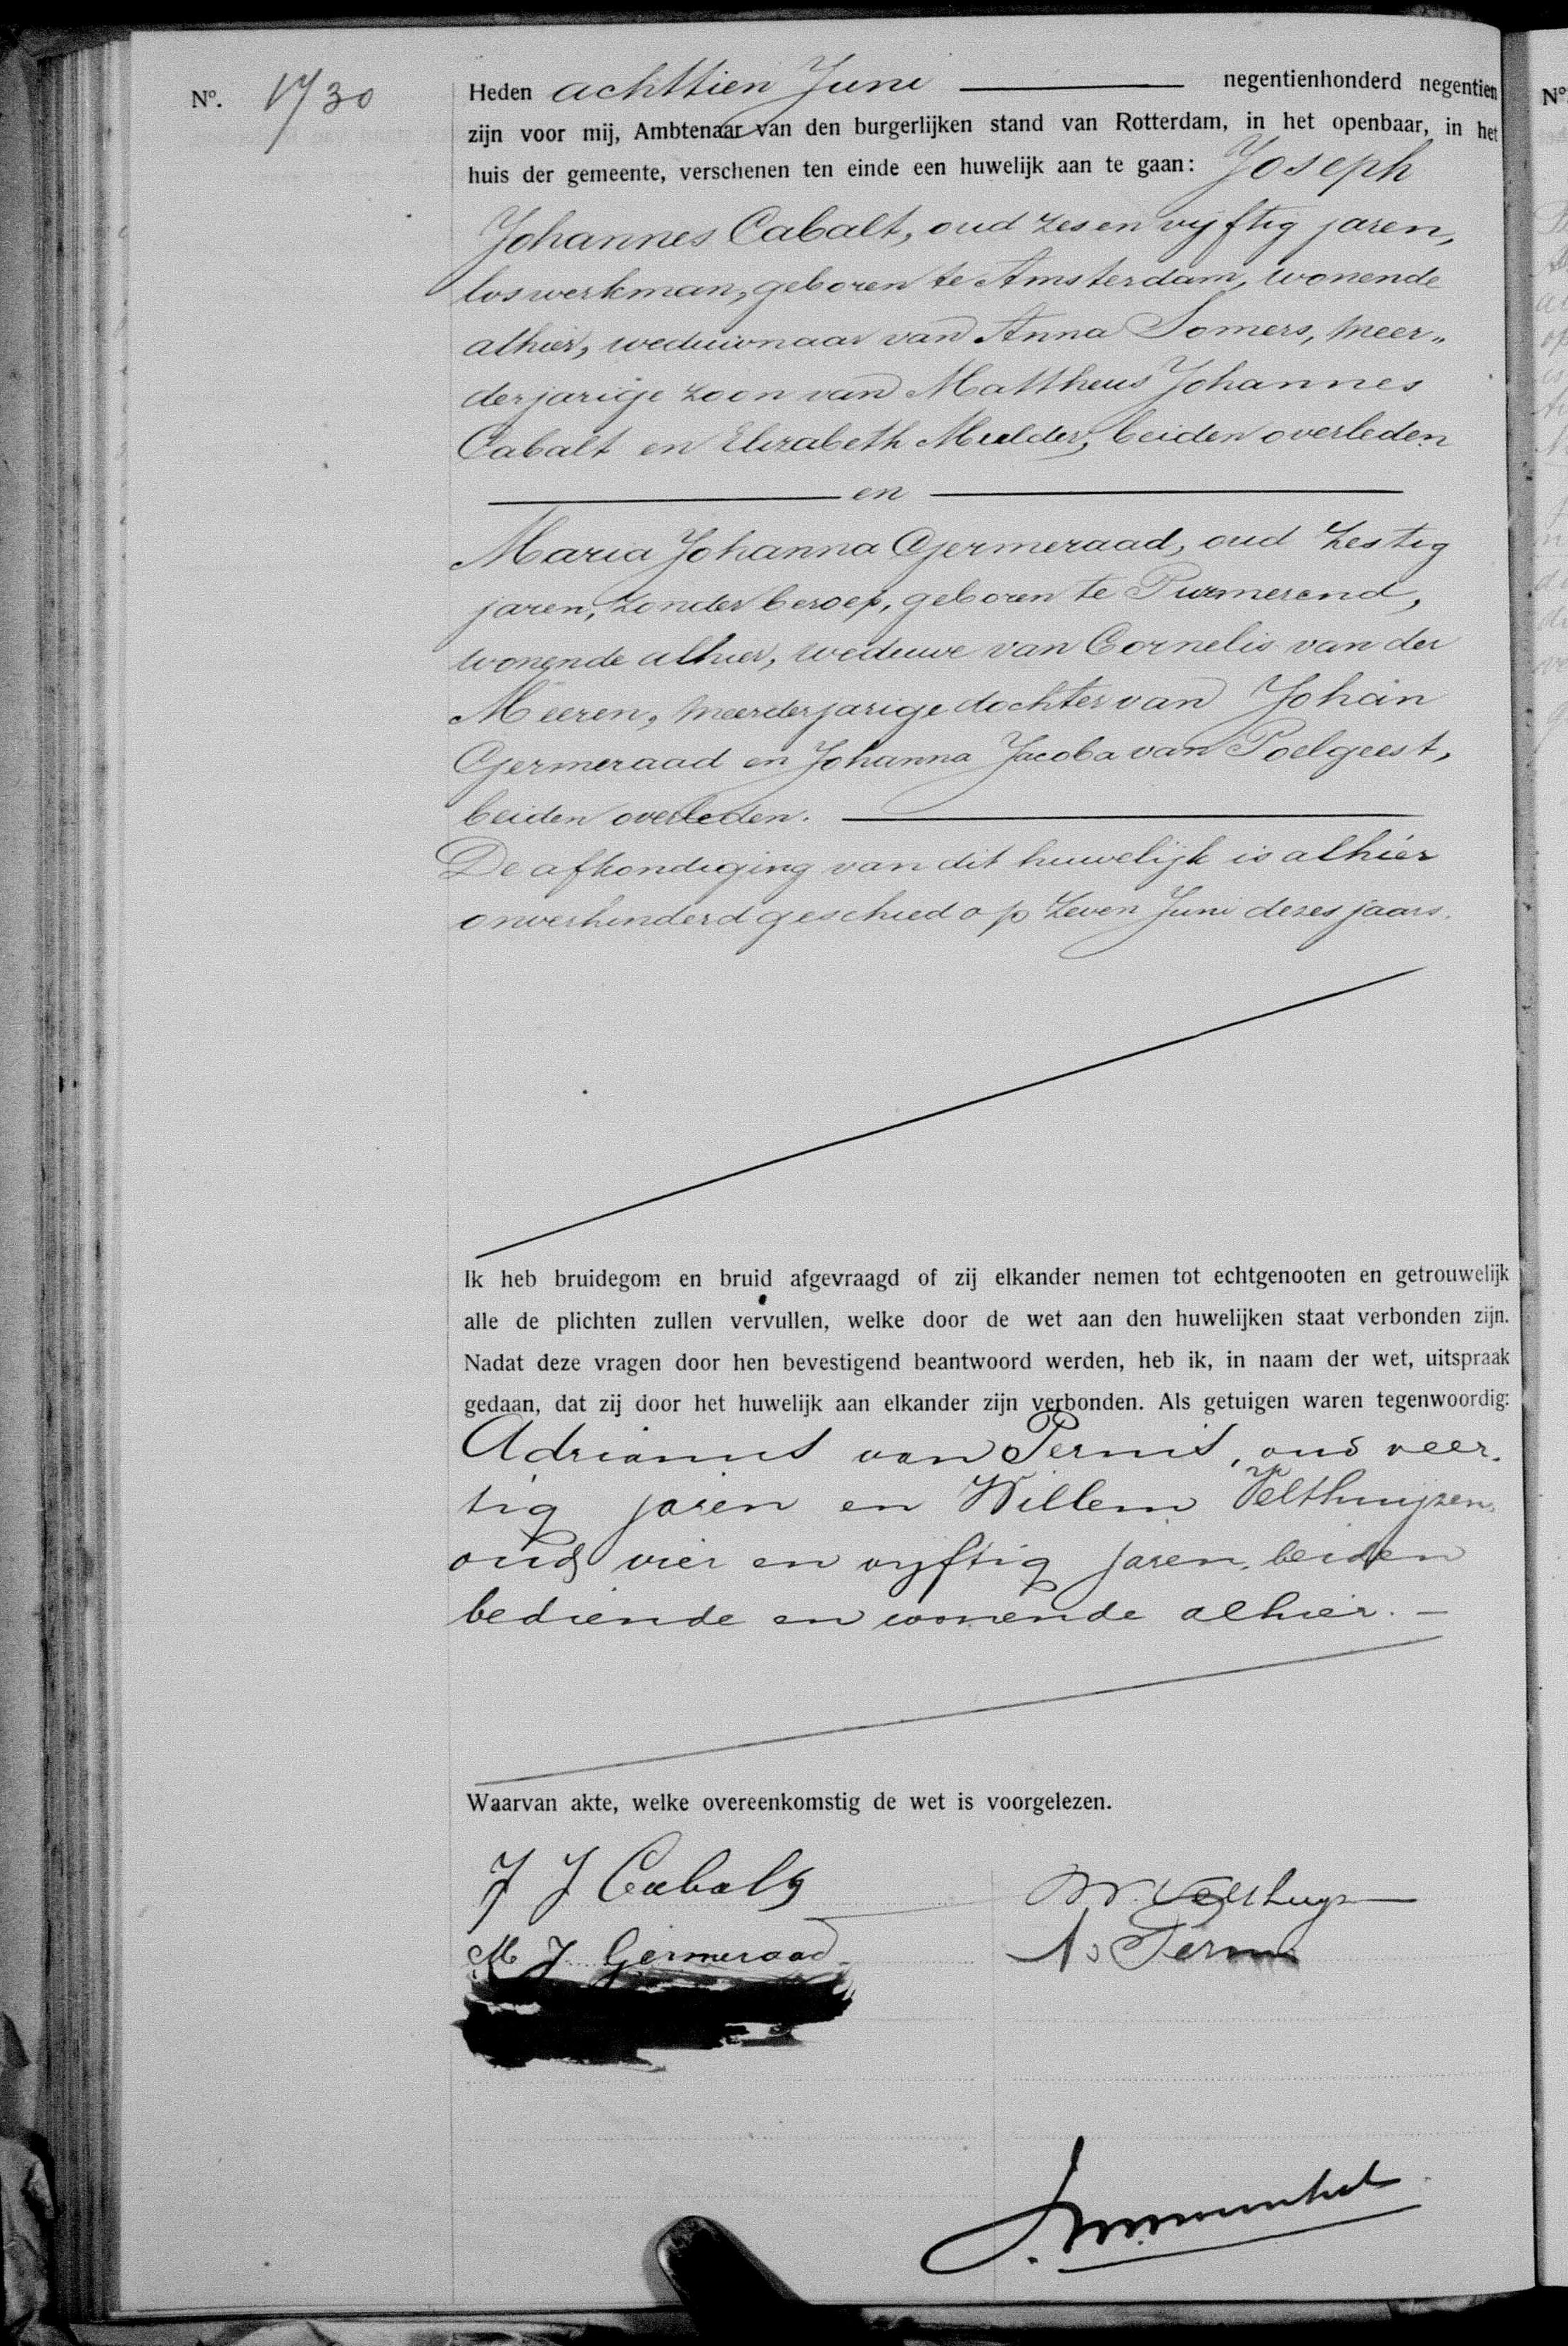 No. 1730
Heden achttien Juni negentienhonderd negentien
zijn voor mij, Ambtenaar van den burgerlijken stand van Rotterdam, in het openbaar, in het
huis der gemeente, verschenen ten einde een huwelijk aan te gaan: Joseph
Johannes Cabalt, oud zes en vyftig jaren,
loswerkman, geboren te Amsterdam, wonende
alhier, weduwnaar van Anna Somers, meer„
derjarige zoon van Mattheus Johannes
Cabalt en Elizabeth Mulder, beiden overleden
en
Maria Johanna Germeraad, oud zestig
jaren, zonder beroep, geboren te Purmerend,
wonende alhier, weduwe van Cornelis van der
Meeren, meerderjarige dochter van Johan
Germeraad en Johanna Jacoba van Poelgeest,
beiden overleden.
De afkondiging van dit huwelijk is alhier
onverhinderd geschied op zeven Juni dezes jaars.
Ik heb bruidegom en bruid afgevraagd of zij elkander nemen tot echtgenooten en getrouwelijk
alle de plichten zullen vervullen, welke door de wet aan den huwelijken staat verbonden zijn.
Nadat deze vragen door hen bevestigend beantwoord werden, heb ik, in naam der wet, uitspraak
gedaan, dat zij door het huwelijk aan elkander zijn verbonden. Als getuigen waren tegenwoordig:
Adrianus van Pernis, oud veer-
tig jaren en Willem Velthuyzen,
oud vier en vyftig jaren, beiden
bediende en wonende alhier. —
Waarvan akte, welke overeenkomstig de wet is voorgelezen.
J J Cabalt
M J Germeraad
No